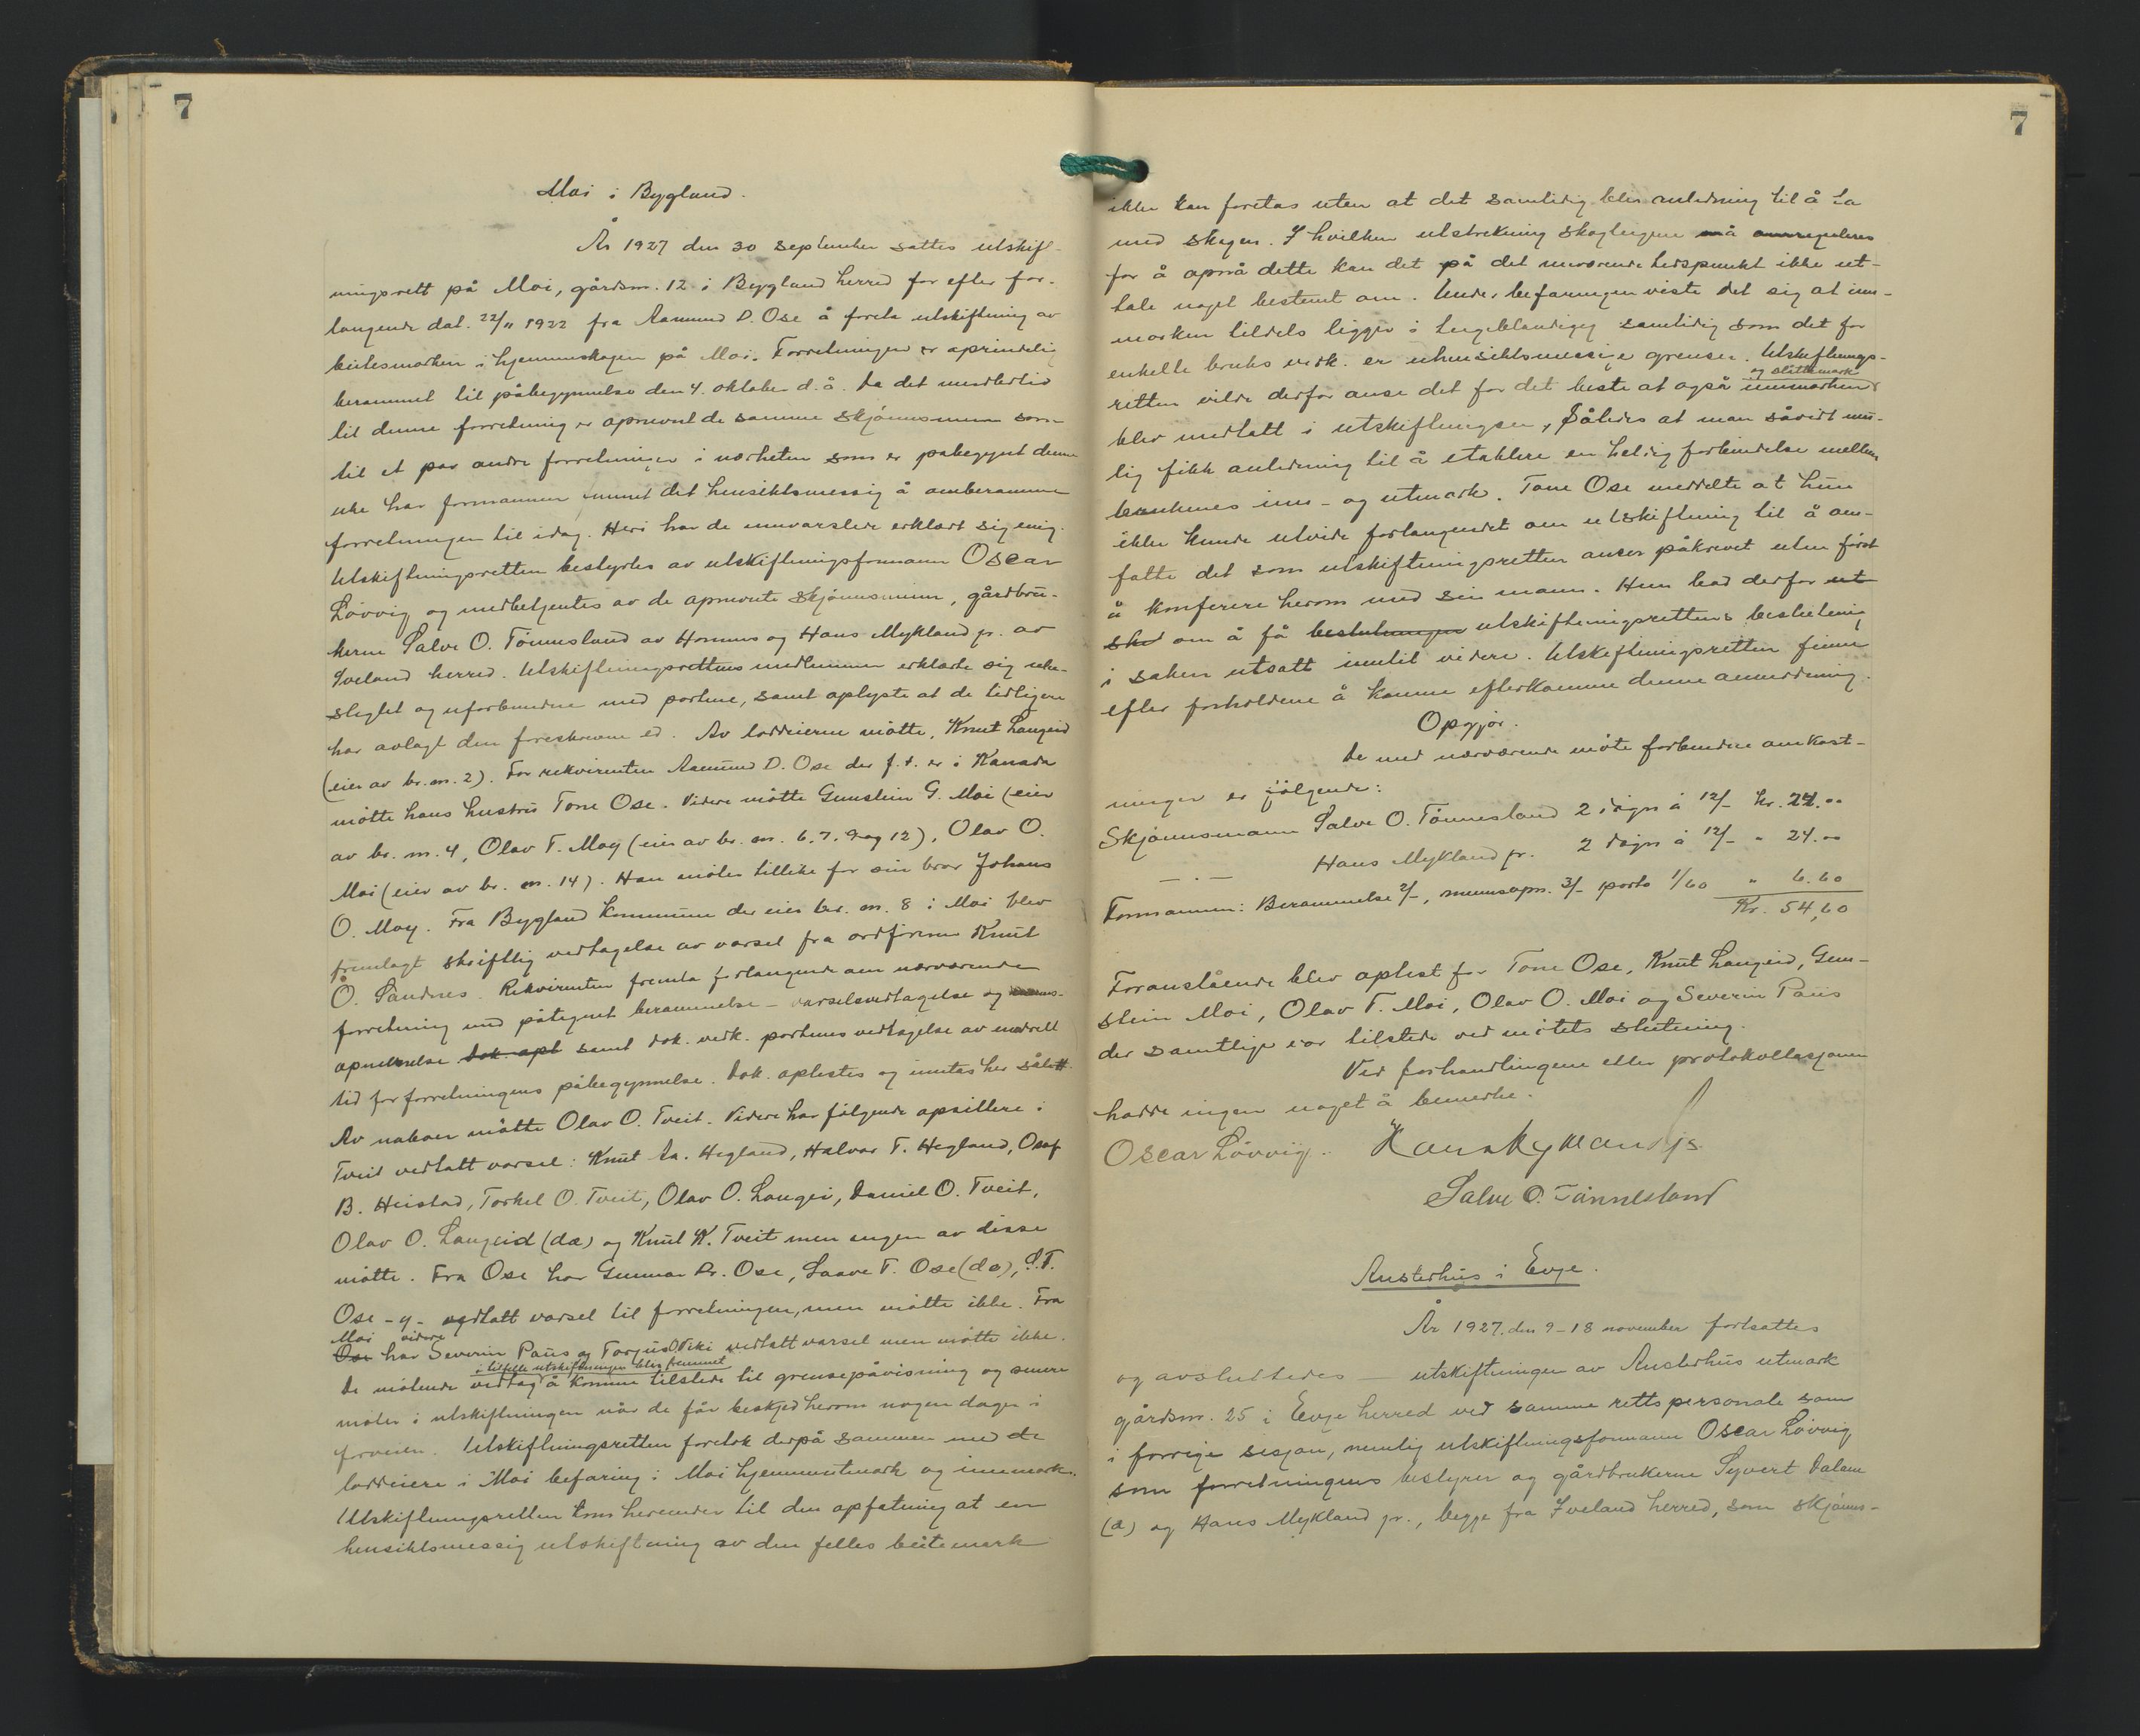 7
Moi i Bygland.
År 1927 den 30 september sattes utskift-
ningsrett på Moi, gårdsnr. 12 i Bygland herred for efter for-
langende dat. 22/11 1922 fra Aamund D. Ose å foreta utskiftning av
beitesmarken i hjemmeskogen på Moi. Forretningen er oprindelig
berammet til påbegynnelse den 4. oktober d.å. Da det imidlertid
til denne forretning er opnevnt de samme skjønnsmenn som
til et par andre forretninger i nærheten som er påbegynt denne
uke har formannen funnet det hensiktsmessig å omberamme
forretningen til idag. Heri har de innvarslede erklært sig enig.
Utskiftningsretten bestyrtes av utskiftningsformann Oscar
Løvvig og medbetjentes av de opnevnte skjønnsmenn, gårdbru-
kerne Salve O. Tønnesland av Hornnes og Hans Mykland jr. av
Iveland herred. Utskiftningsrettens medlemmer erklærte sig ube-
slegtet og uforbundne med partene, samt oplyste at de tidligere
har avlagt den foreskrevne ed. Av loddeierne møtte, Knut Langeid
(eier av br. nr. 2). For rekvirenten Aamund D. Ose der f.t. er i Kanada
møtte hans hustru Tone Ose. Videre møtte Gunstein G. Moi (eier
av br. nr. 4, Olav T. Moy (eier av br. nr. 6, 7, 9 og 12), Olav O.
Moi (eier av br. nr. 14). Han møter tillike for sin bror Johans
O. Moy. Fra Bygland kommune der eier br. nr. 8 i Moi blev
fremlagt skriftlig vedtagelse av varsel fra ordfører Knut
O. Sandnes. Rekvirenten fremla forlangende om nærværende
forretning med påtegnet berammelse - varselsvedtagelse og
opnevnelse dok. opl samt dok. vedk. partenes vedtagelse av
tid for forretningens påbegynnelse. Dok. oplestes og inntas her
Av naboer møtte Olav O. Tveit. Videre har følgende opsittere i
Tveit vedtatt varsel: Knut Aa. Hegland, Halvor T. Hegland, Olaf
B. Heistad, Torkel O. Tveit, Olav O. Langei, Daniel O. Tveit,
Olav O. Langeid (da) og Knut K. Tveit men ingen av disse
møtte. Fra Ose har Gunnar Dr. Ose, Saave T. Ose (da), S. T.
Ose - y - vedtatt varsel til forretningen, men møtte ikke. Fra
Moi videre
Ose har Severin Paus og Torjus O. Viki vedtatt varsel men møtte ikke.
i tilfelle utskiftningen blir fremmet
De møtende vedtog å komme tilstede til grensepåvisning og senere
møter i utskiftningen når de får beskjed herom nogen dager i
forveien. Utskiftningsretten foretok derpå sammen med de
loddeiere i Moi befaring i Moi hjemmeutmark og innmark.
Utskiftningsretten kom herunder til den opfatning at en
hensiktsmessig utskiftning av den felles beitemark
7
ikke kan foretas uten at det samtidig blir anledning til å ta
med skogen. I hvilken utstrekning skogteigene må omreguleres
for å opnå dette kan det på det nuværende tidspunkt ikke ut-
tale noget bestemt om. Under befaringen viste det sig at inn-
marken tildels ligger i teigblanding samtidig som det for
enkelte bruks vedk. er uhensiktsmessige grenser. Utskiftnings-
og slåttemark
retten vilde derfor anse det for det beste at også innmarken
blev medtatt i utskiftningen, således at man såvidt mu-
lig fikk anledning til å etablere en heldig forbindelse mellem
brukenes inn- og utmark. Tone Ose meddelte at hun
ikke kunde utvide forlangendet om utskiftning til å om-
fatte det som utskiftningsretten anser påkrevet uten først
å konferere herom med sin mann. Hun bad derfor ut
sku om å få beslutningen utskiftningsrettens beslutning
i saken utsatt inntil videre. Utskiftningsretten finner
efter forholdene å kunne efterkomme denne anmodning.
Opgjør.
De med nærværende møte forbundne omkost-
ninger er følgende:
Skjønnsmann Salve O. Tønnesland 2 døgn à 12/- kr. 24.00
- . - Hans Mykland jr. 2 døgn à 12/- " 24.00
Formannen: Berammelse 2/-, mannsopn. 3/- porto 1/60 " 6.60
Kr. 54,60
Foranstående blev oplest for Tone Ose, Knut Langeid, Gun-
stein Moi, Olav T. Moi, Olav O. Moi og Severin Paus
der samtlige var tilstede ved møtets slutning.
Ved forhandlingene eller protokollasjonen
hadde ingen noget å bemerke.
Oscar Løvvig. Hans Mykland js.
Salve O. Tønnesland
Austerhus i Evje.
År 1927. den 9-18 november fortsattes
og avsluttedes - utskiftningen av Austerhus utmark
gårdsnr. 25 i Evje herred ved samme rettspersonale som
i forrige sesjon, nemlig utskiftningsformann Oscar Løvvig
som forretningens bestyrer og gårdbrukerne Syvert Dalane
(a) og Hans Mykland jr., begge fra Iveland herred, som skjønns-